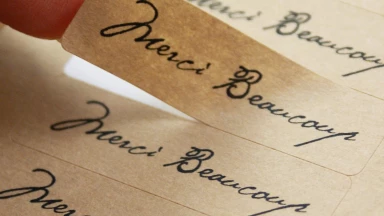 Merci Beaucoup
Merci Beaucoup
Merci Beaucoup
Beaucoup